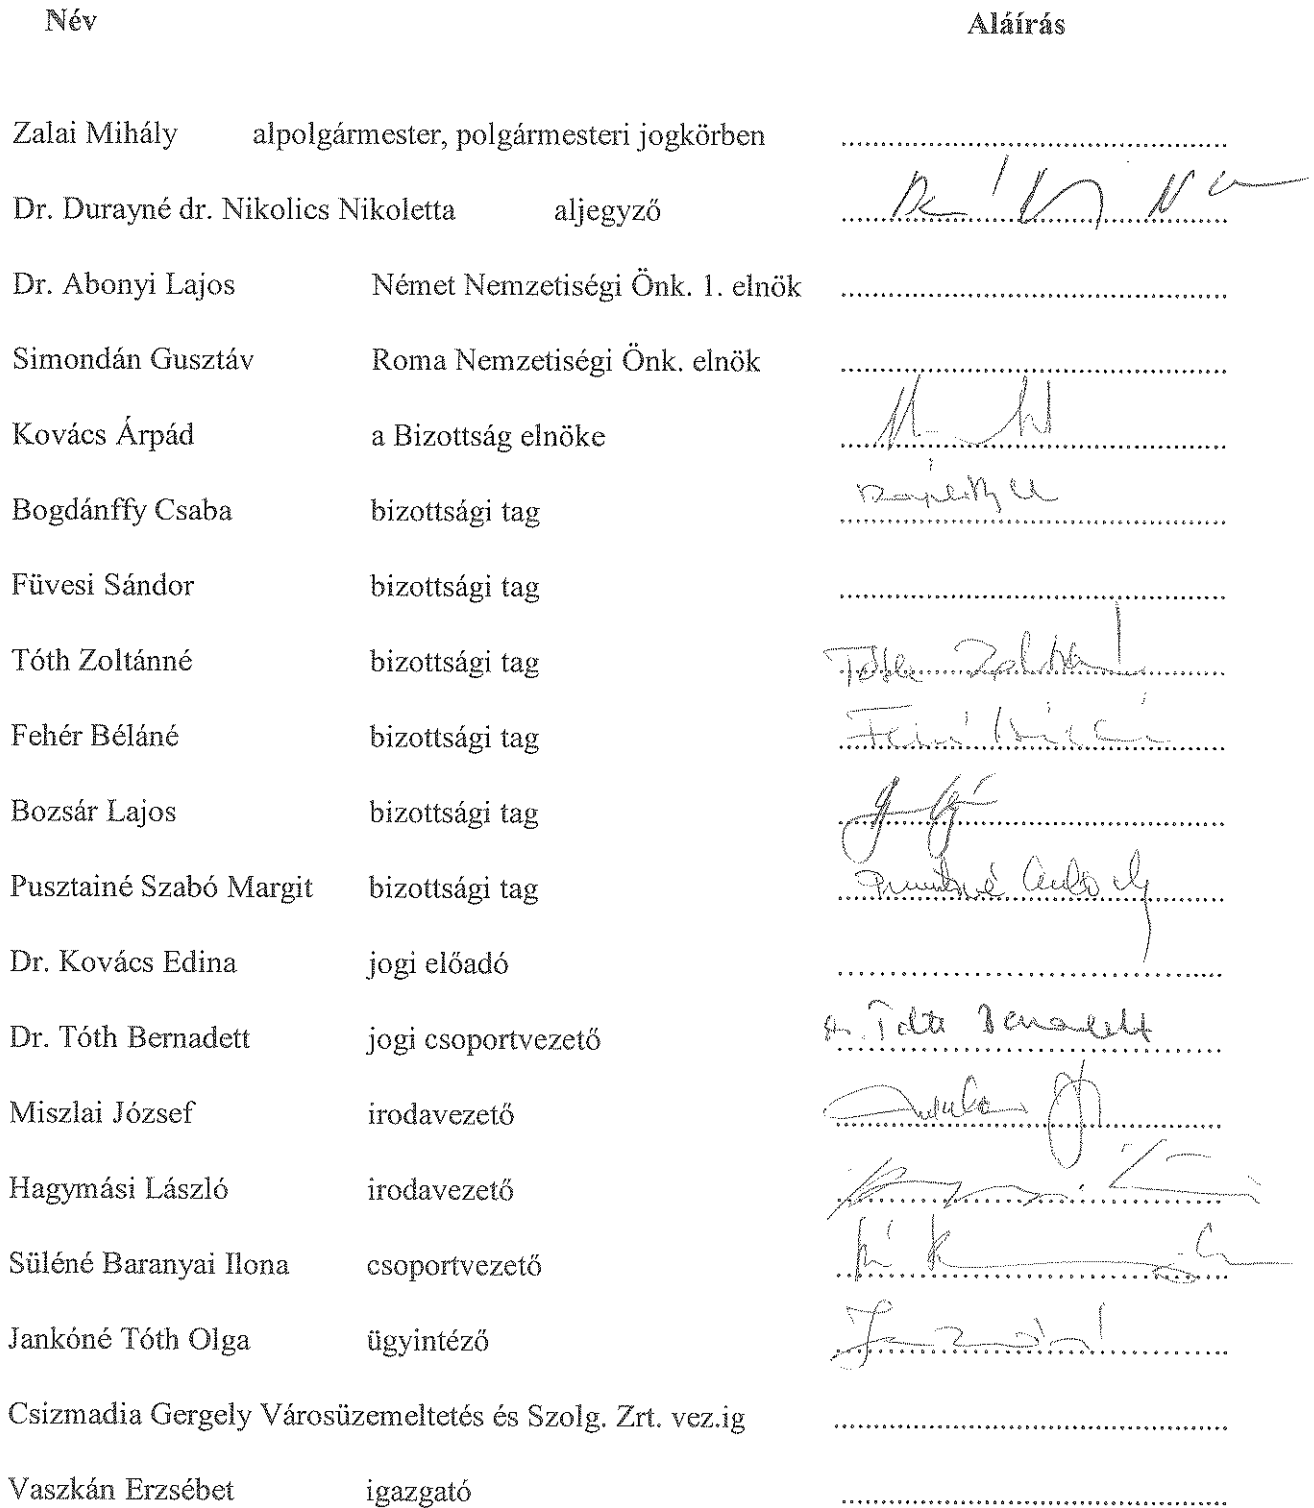 Név Aláírás
Zalai Mihály alpolgármester, polgármesteri jogkörben ........................................
Dr. Durayné dr. Nikolics Nikoletta aljegyző ........................................
Dr. Abonyi Lajos Német Nemzetiségi Önk. 1. elnök ........................................
Simondán Gusztáv Roma Nemzetiségi Önk. elnök ........................................
Kovács Árpád a Bizottság elnöke ........................................
Bogdánffy Csaba bizottsági tag ........................................
Füvesi Sándor bizottsági tag ........................................
Tóth Zoltánné bizottsági tag ........................................
Fehér Béláné bizottsági tag ........................................
Bozsár Lajos bizottsági tag ........................................
Pusztainé Szabó Margit bizottsági tag ........................................
Dr. Kovács Edina jogi előadó ........................................
Dr. Tóth Bernadett jogi csoportvezető Dr. Tóth Bernadett
Miszlai József irodavezető ........................................
Hagymási László irodavezető ........................................
Süléné Baranyai Ilona csoportvezető ........................................
Jankóné Tóth Olga ügyintéző ........................................
Csizmadia Gergely Városüzemeltetés és Szolg. Zrt. vez.ig ........................................
Vaszkán Erzsébet igazgató ........................................